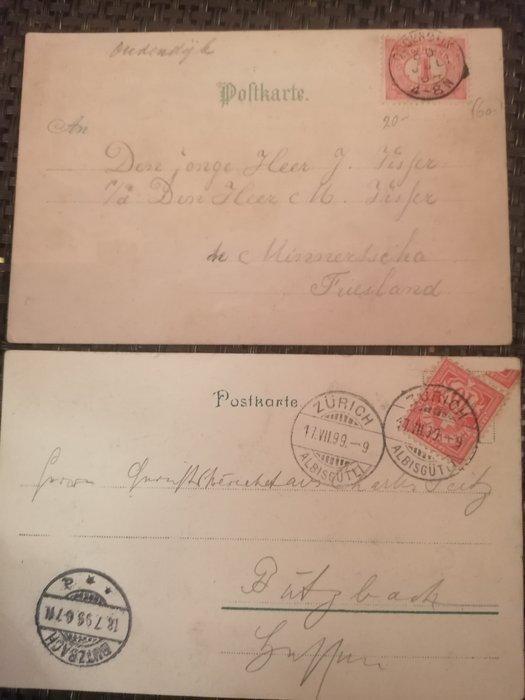 Oudendijk
Postkarte.
1
4-8N
20-
(60.-)
An
Den jonge Heer J. Visser
p/a Den Heer M. Visser
te Minnertscha
Friesland
Postkarte
ZÜRICH
17.VII.99.-9
ALBISGÜTLI
ZÜRICH
17.VII.99.-9
ALBISGÜTLI
Herrn
Butzbach
Hessen
18.7.99.6-7N
BUTZBACH